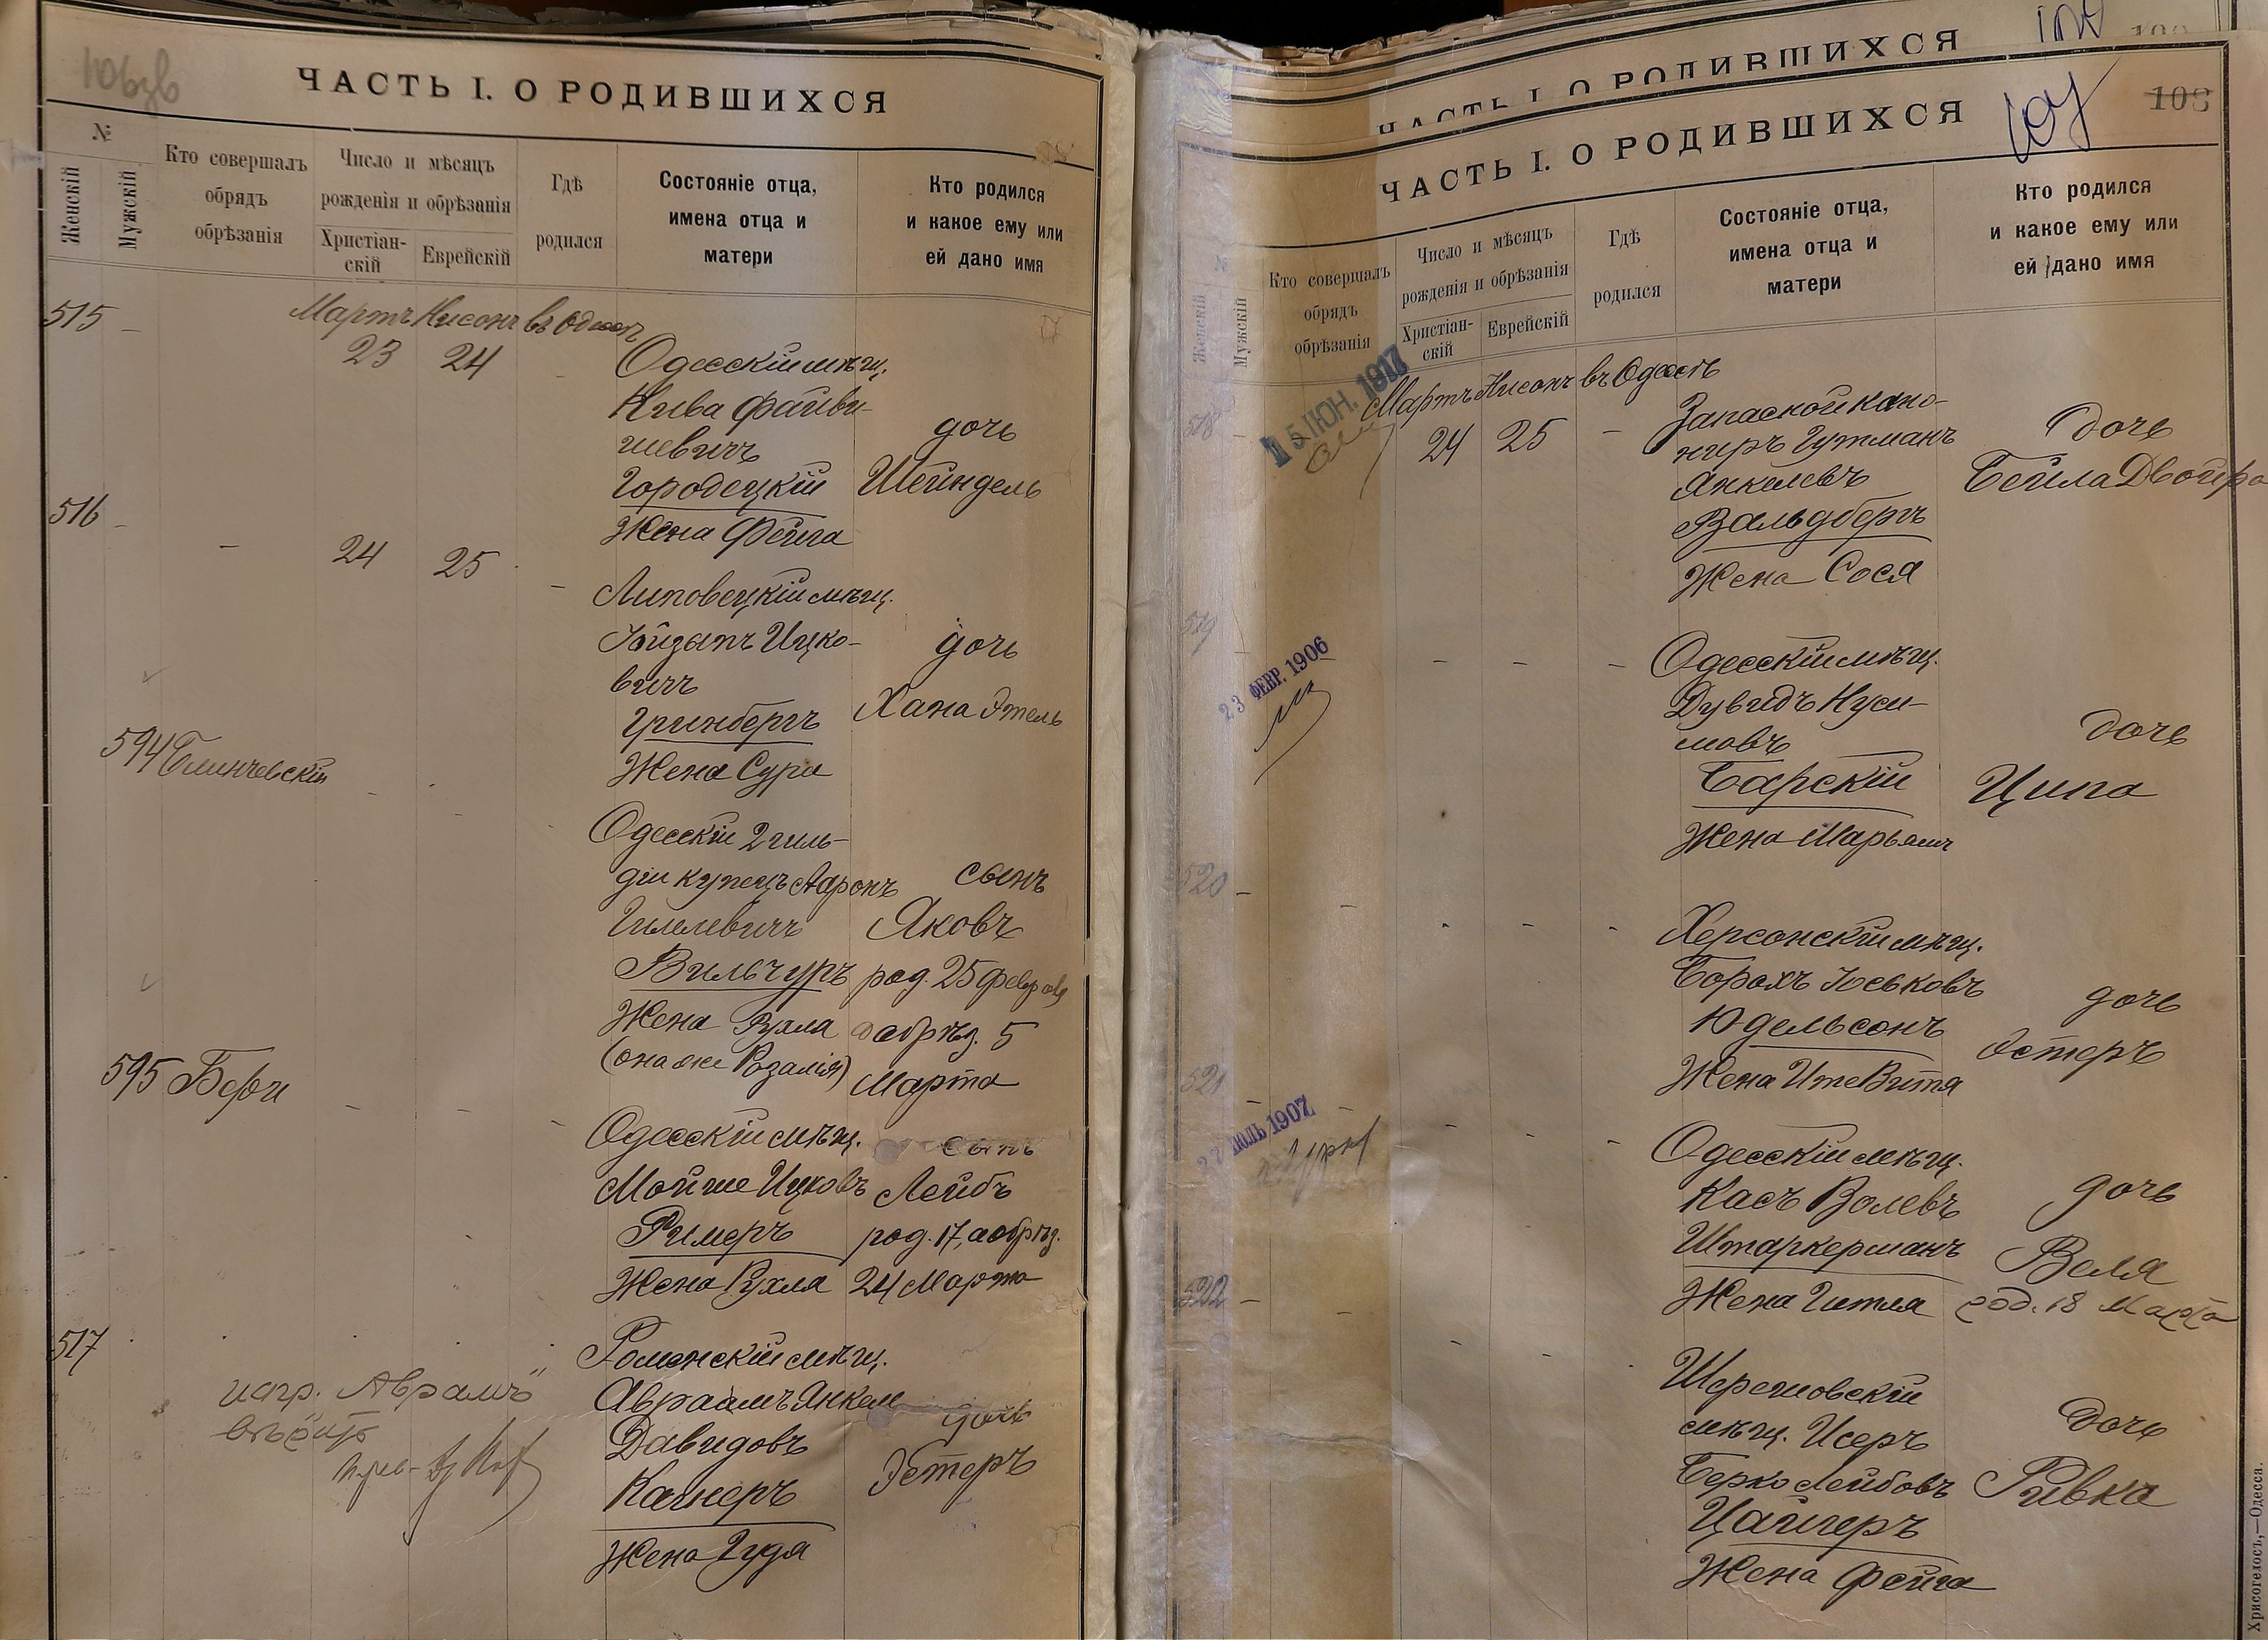 106зв
ЧАСТЬ I. О РОДИВШИХСЯ
№
Женскій
Мужскій
Кто совершалъ
обрядъ
обрѣзанія
Число и мѣсяцъ
рожденія и обрѣзанія
Христіан-
скій
Еврейскій
Гдѣ
родился
Состояніе отца,
имена отца и
матери
Кто родился
и какое ему или
ей дано имя
515 Мартъ Нисонъ въ Одессѣ
23 24 Одесскій мѣщ.
Кива Файви-
шевичъ дочь
Городецкій Шейндель
Жена Фейга
516
24 25
Липовецкій мѣщ.
Ицко- дочь
вичъ
Гринбергъ Хана Этель
Жена Сура
594 Блинчевскій
Одесскій 2 гиль-
діи купецъ Ааронъ сынъ
Гилелевичъ Яковъ
Вильчуръ род. 25 февраля
Жена Рухла а обрѣз. 5
(она же Розалія) Марта
595
Одесскій мѣщ. сынъ
Мойше Ицковъ Лейбъ
Римеръ род. 17, а обрѣз.
Жена Рухла 24 Марта
517
Роменскій мѣщ.
испр. „Аврамъ“ Авраамъ Янкел дочь
вѣрить Давидовъ Эстеръ
Кайнеръ
Жена Гудя
ЧАСТЬ I. О РОДИВШИХСЯ
108
ЧАСТЬ I. О РОДИВШИХСЯ
107
№
Женскій
Мужскій
Кто совершалъ
обрядъ
обрѣзанія
Число и мѣсяцъ
рожденія и обрѣзанія
Христіан-
скій
Еврейскій
Гдѣ
родился
Состояніе отца,
имена отца и
матери
Кто родился
и какое ему или
ей дано имя
518 5 ІЮН. 1917 Мартъ Нисонъ въ Одессѣ
24 25 Запасной кано-
ниръ Гутманъ дочь
Янкелевъ Бейла Двойра
Вальдбергъ
Жена Сося
519
23 ФЕВР. 1906
Одесскій мѣщ.
Дувидъ Нуси-
мовъ дочь
Барскій Ципа
Жена Марьямъ
520
Херсонскій мѣщ.
Борохъ Юськовъ дочь
Юдельсонъ Эстеръ
Жена Ите Витя
521
27 ІЮЛЬ 1907
Одесскій мѣщ.
Касъ Волевъ дочь
Штаркерманъ Веля
Жена Гитля род. 18 Марта
522
Шерешовскій
мѣщ. Исеръ дочь
Берко Лейбовъ Ривка
Цайгеръ
Жена Фейга
Хрисогелосъ,—Одесса.